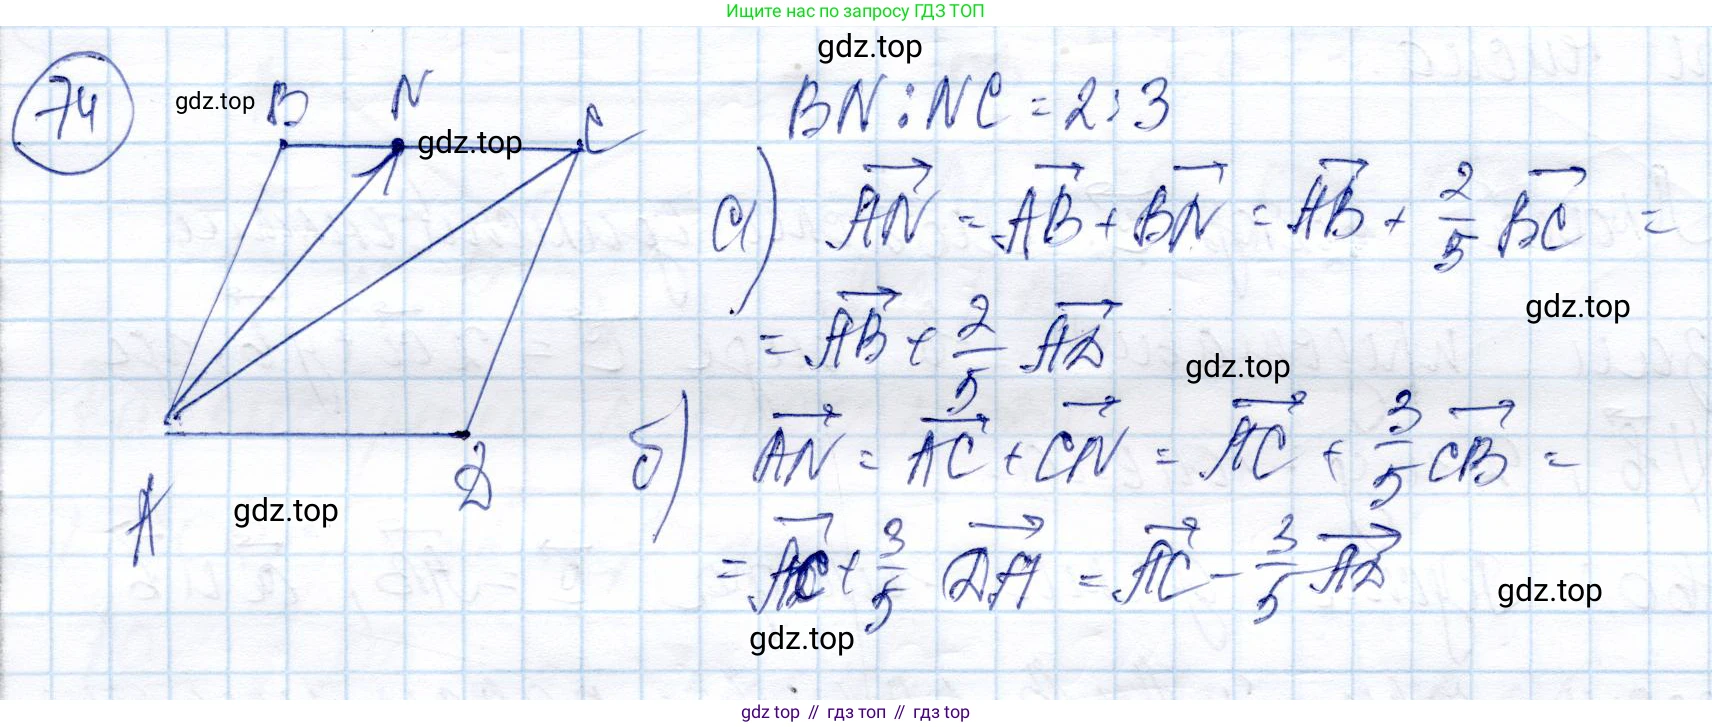 Ищите нас по запросу ГДЗ ТОП
gdz.top
74
gdz.top B N C
gdz.top
BN : NC = 2 : 3
а) AN = AB + BN = AB + 2/5 BC =
gdz.top
= AB + 2/5 AD
gdz.top
б) AN = AC + CN = AC + 3/5 CB =
A D
gdz.top
= AC + 3/5 DA = AC - 3/5 AD
gdz.top
gdz.top
gdz top // гдз топ // gdz top